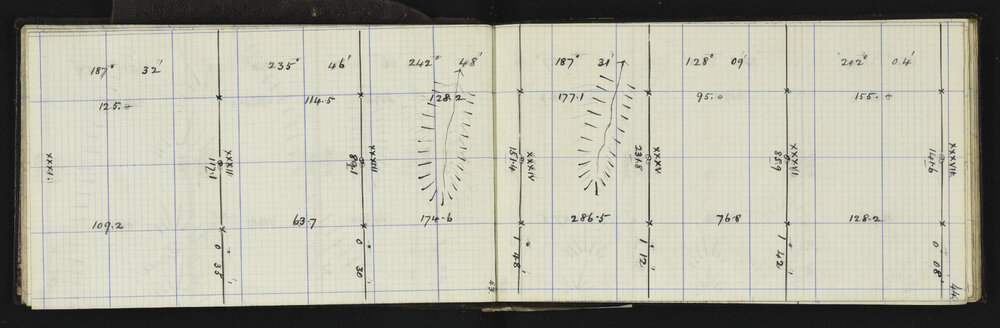 187° 32' 235° 46' 242° 48' 187° 31' 128° 09' 202° 04'
125.0 114.5 128.2 177.1 95.0 155.0
XXXII
117.1
XXXIII
89.1
XXXIV
151.4
XXXV
231.8
XXXVI
85.9
XXXVII
141.6
109.2 63.7 174.6 286.5 76.8 128.2
0° 33'
0° 30'
1° 48'
1° 12'
1° 42'
0° 08'
43.
44